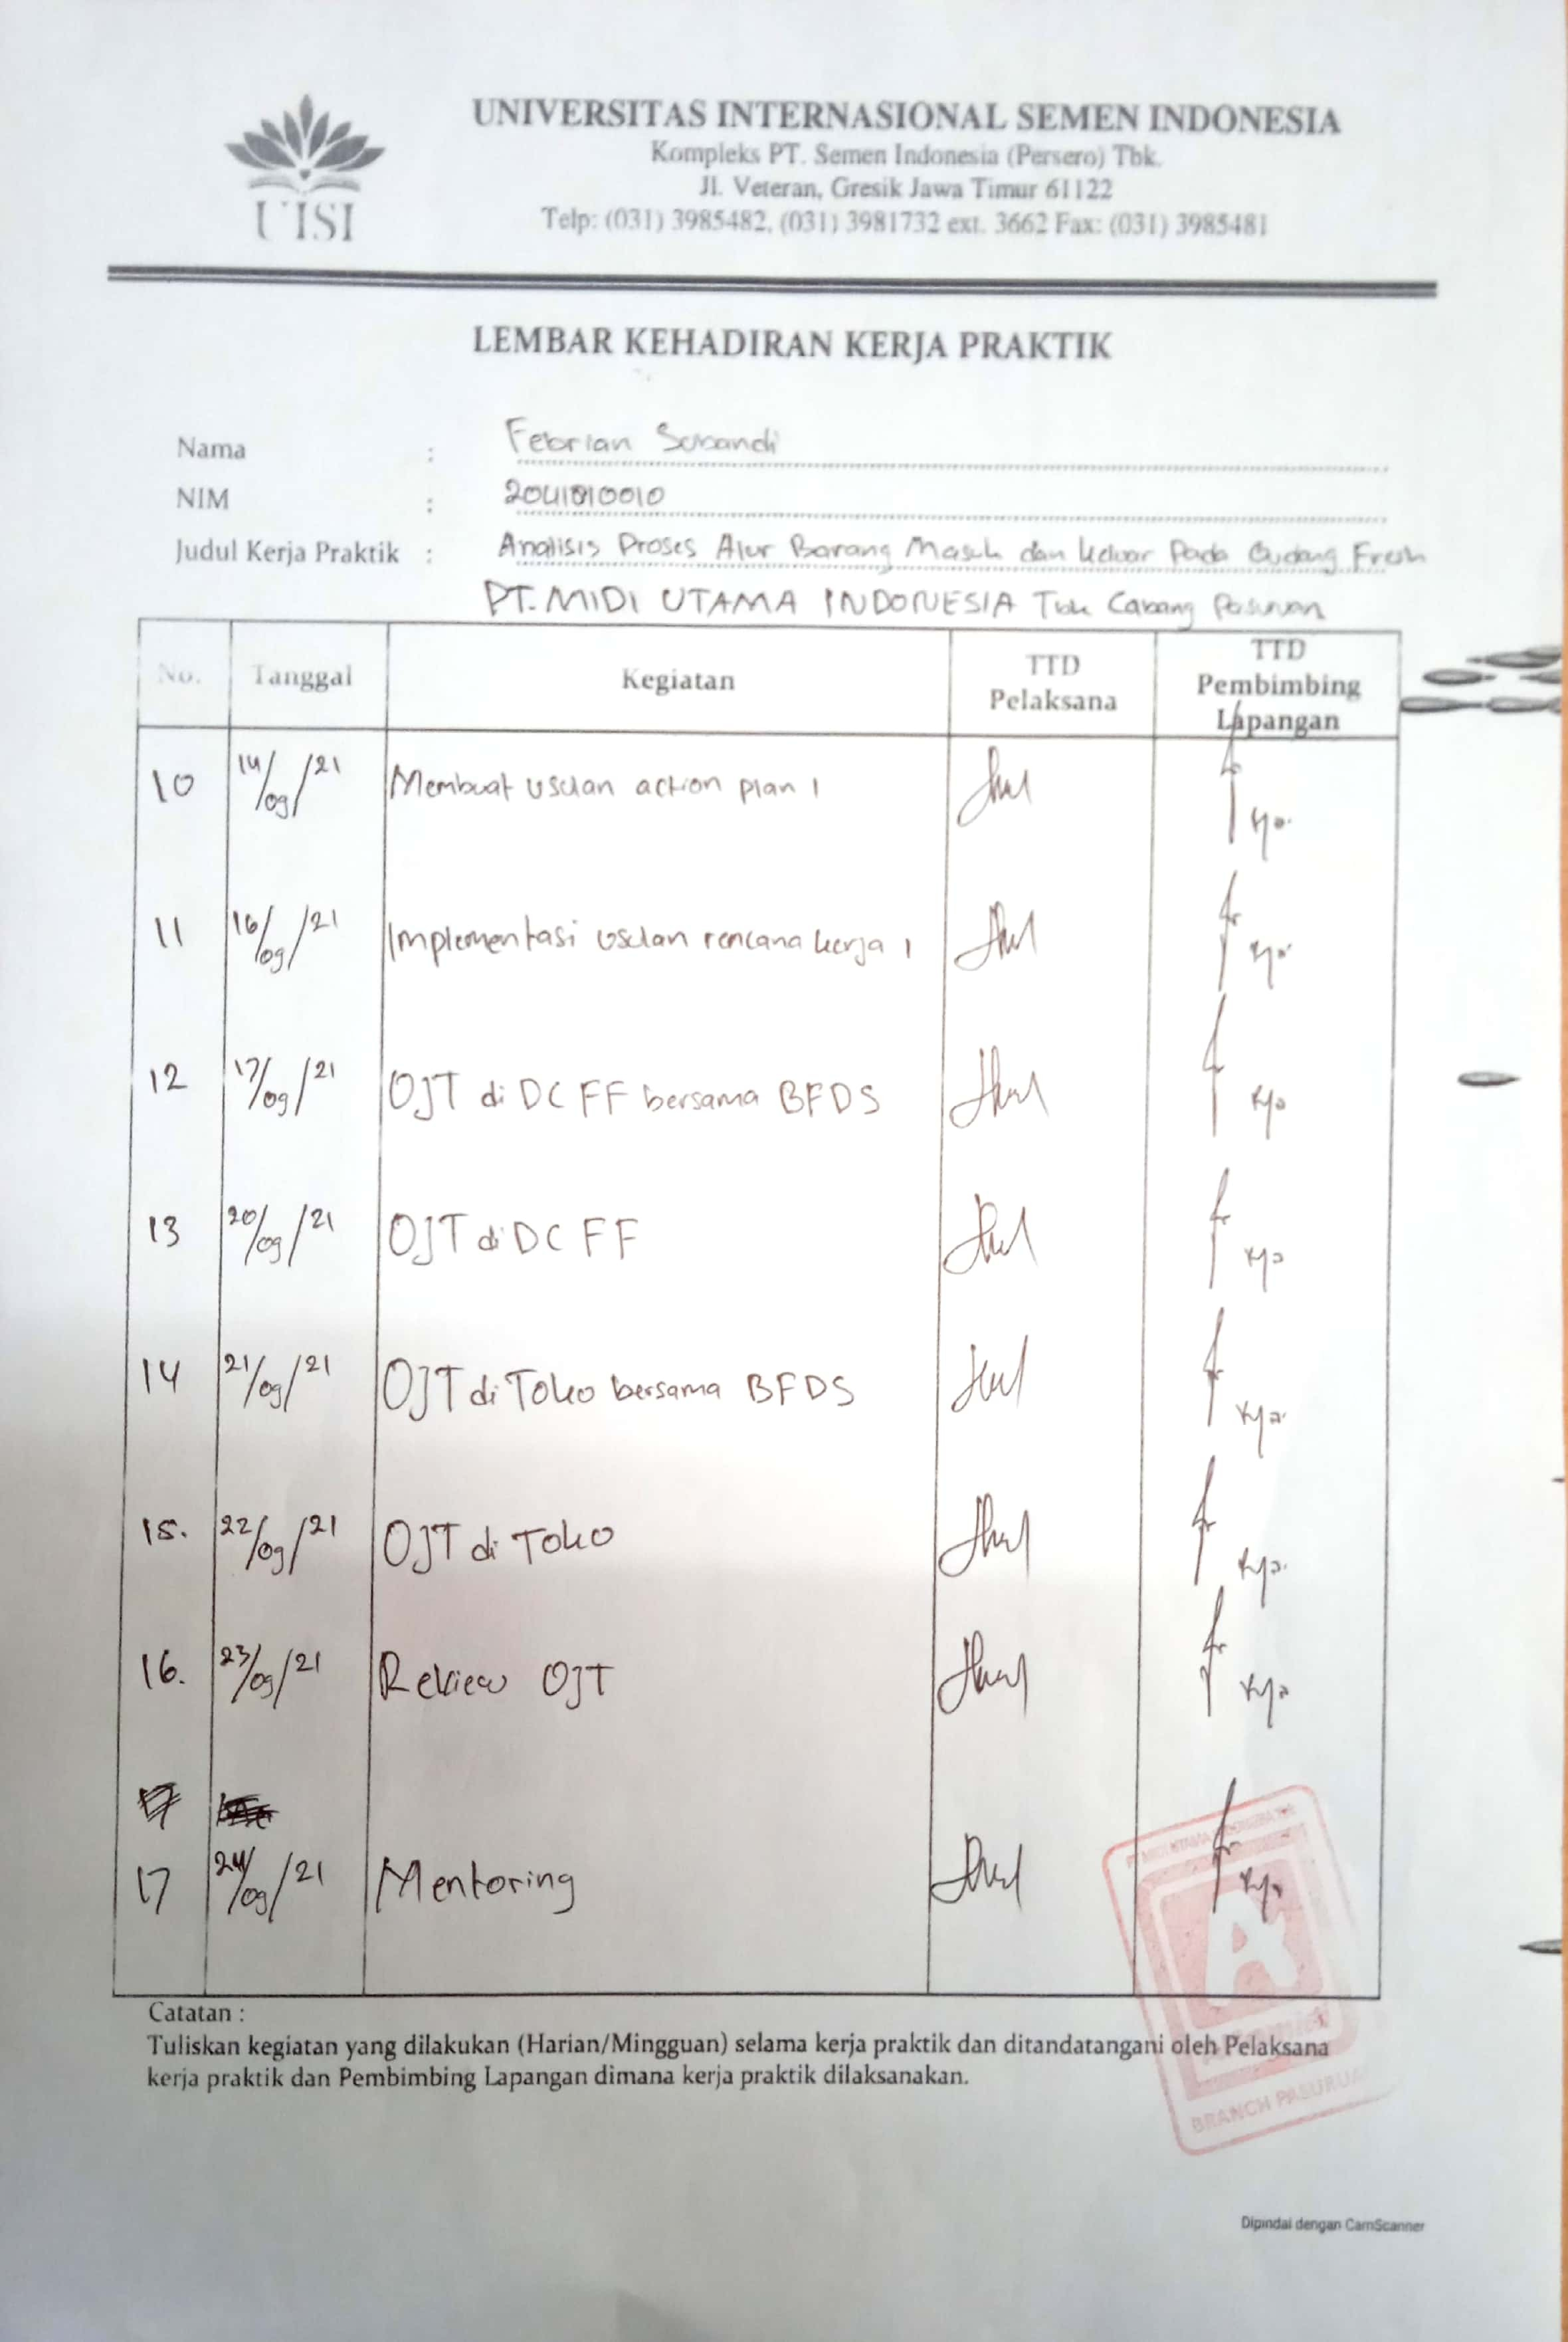 UNIVERSITAS INTERNASIONAL SEMEN INDONESIA
Kompleks PT. Semen Indonesia (Persero) Tbk.
Jl. Veteran, Gresik Jawa Timur 61122
Telp: (031) 3985482, (031) 3981732 ext. 3662 Fax: (031) 3985481
UISI
LEMBAR KEHADIRAN KERJA PRAKTIK
Nama : Febrian
NIM : 2041810010
Judul Kerja Praktik : Analisis Proses Alur Barang Masuk dan Keluar Pada Gudang Fresh
PT. MIDI UTAMA INDONESIA Tbk Cabang Pasuruan
No. Tanggal Kegiatan TTD Pelaksana TTD Pembimbing Lapangan
10 14/09/21 Membuat usulan action plan 1
11 16/09/21 Implementasi usulan rencana kerja 1
12 17/09/21 OJT di DC FF bersama BFDS
13 20/09/21 OJT di DC FF
14 21/09/21 OJT di Toko bersama BFDS
15. 22/09/21 OJT di Toko
16. 23/09/21 Review OJT
17 24/09/21 Mentoring
Catatan :
Tuliskan kegiatan yang dilakukan (Harian/Mingguan) selama kerja praktik dan ditandatangani oleh Pelaksana
kerja praktik dan Pembimbing Lapangan dimana kerja praktik dilaksanakan.
BRANCH PASURUA
Dipindai dengan CamScanner